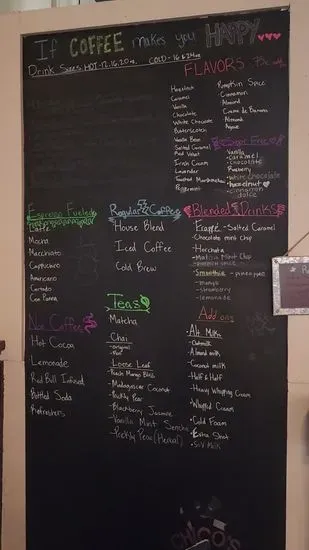 If COFFEE makes you HAPPY
Drink Sizes HOT-12,16,20oz. COLD-16&24oz
FLAVORS
Hazelnut
Caramel
Vanilla
Chocolate
White Chocolate
Butterscotch
Vanilla Bean
Salted Caramel
Red Velvet
Irish Cream
Lavender
Toasted Marshmallow
Peppermint
Pumpkin Spice
Cinnamon
Almond
Creme de Banana
Almond
Agave
Sugar Free
Vanilla
-caramel
-chocolate
Raspberry
-white chocolate
hazelnut
-cinnamon dolce
Espresso Fueled
Latte
Mocha
Macchiato
Cappuccino
Americano
Cortado
Con Panna
Regular Coffee
House Blend
Iced Coffee
Cold Brew
Blended Drinks
Frappé - Salted Caramel
- Chocolate mint Chip
- Horchata
- Matcha Mint Chip
- Smoothie - pineapple
-mango
-strawberry
-lemonade
Not Coffee
Hot Cocoa
Lemonade
Red Bull Infused
Bottled Soda
Refreshers
Teas
Matcha
Chai
-original
Loose Leaf
-Peach Mango Black
-Madagascar Coconut
-Prickly Pear
-Blackberry Jasmine
-Vanilla Mint Sencha
-Prickly Pear (Herbal)
Add ons
Alt. Milk
-Oatmilk
-Almond milk
-Coconut milk
-Half & Half
-Heavy Whipping Cream
-Whipped Cream
-Cold Foam
-Extra Shot
-Soy Milk
CHICO'S